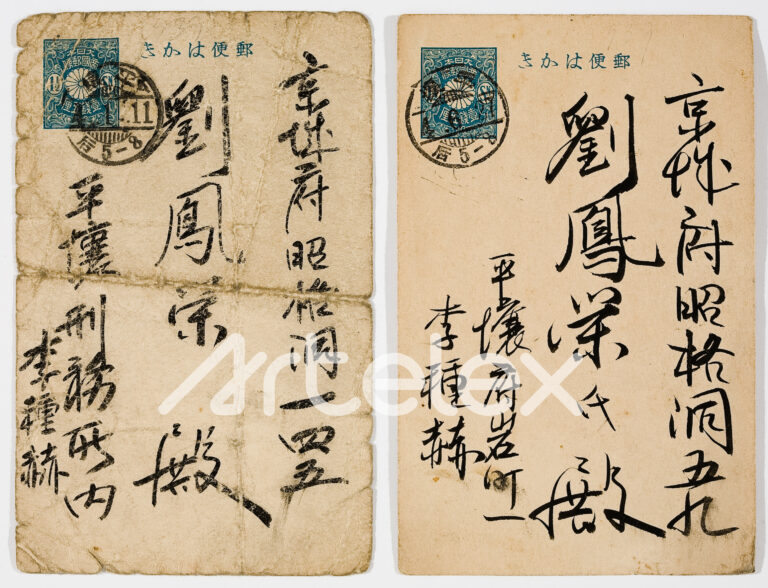 郵便はかき
京城府昭格洞一四五
劉鳳栄 殿
平壤刑務所内
李種赫
后5-8
郵便はかき
京城府昭格洞五九
劉鳳栄氏 殿
平壤府岩町一
李種赫
后5-8
Artelex